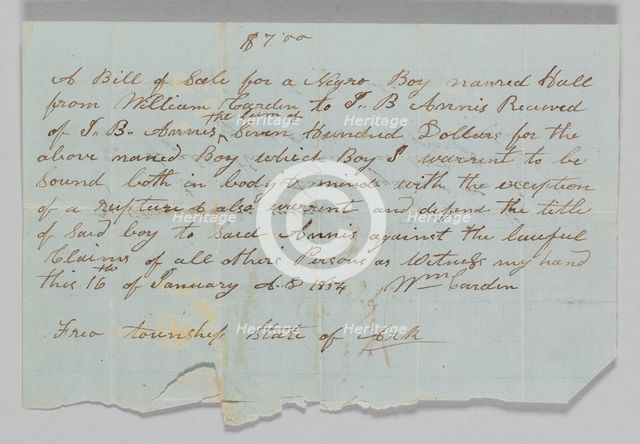 $700
A Bill of Sale for a Negro Boy named Hall
from William Carden, to J.. B Annis Received
the sum of
of J.. B.. Annis Seven Hundred Dollars for the
above named Boy which Boy I warrent to be
Sound both in body & mind with the exception
of a rupture & also warrent and defend the title
of Said boy to Said Annis against the lawful
Claims of all others Persons as Witness my hand
this 16th of January A.D 1854 Wm Carden
Freo township State of Ark
Heritage
Heritage
Heritage
Heritage
Heritage
Heritage
Heritage